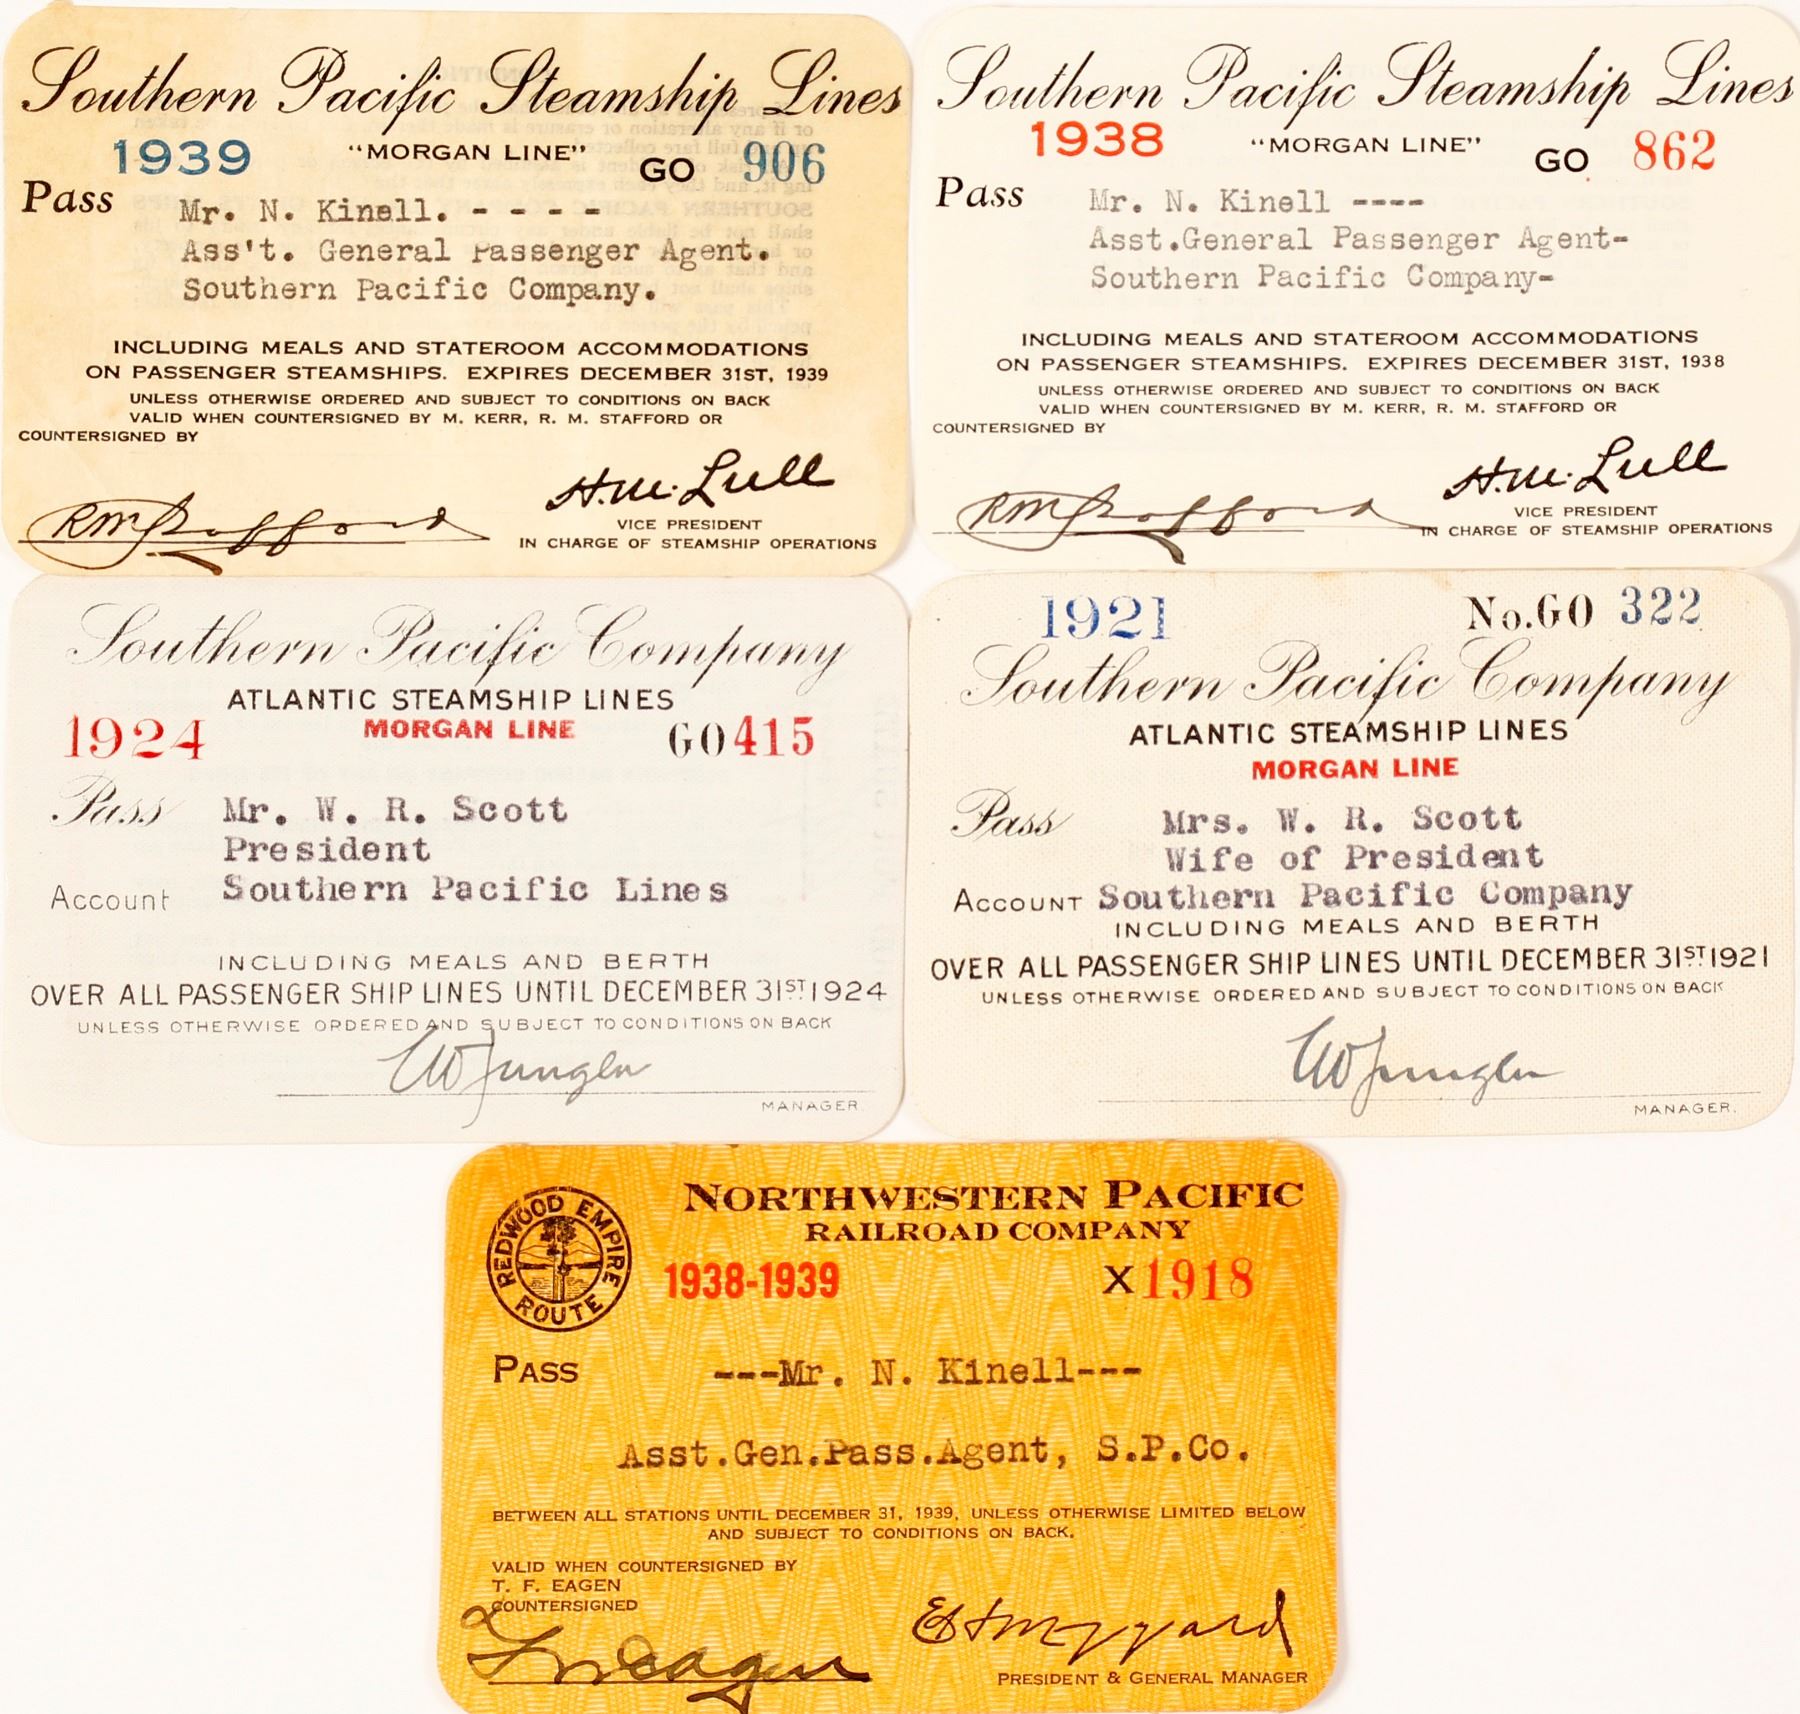 Southern Pacific Steamship Lines
1939 "MORGAN LINE" GO 906
Pass Mr. N. Kinell. - - - -
Ass't. General Passenger Agent.
Southern Pacific Company.
INCLUDING MEALS AND STATEROOM ACCOMMODATIONS
ON PASSENGER STEAMSHIPS. EXPIRES DECEMBER 31ST, 1939
UNLESS OTHERWISE ORDERED AND SUBJECT TO CONDITIONS ON BACK
VALID WHEN COUNTERSIGNED BY M. KERR, R. M. STAFFORD OR
COUNTERSIGNED BY
RM Stafford
H.M. Lull
VICE PRESIDENT
IN CHARGE OF STEAMSHIP OPERATIONS
Southern Pacific Steamship Lines
1938 "MORGAN LINE" GO 862
Pass Mr. N. Kinell ----
Asst.General Passenger Agent-
Southern Pacific Company-
INCLUDING MEALS AND STATEROOM ACCOMMODATIONS
ON PASSENGER STEAMSHIPS. EXPIRES DECEMBER 31ST, 1938
UNLESS OTHERWISE ORDERED AND SUBJECT TO CONDITIONS ON BACK
VALID WHEN COUNTERSIGNED BY M. KERR, R. M. STAFFORD OR
COUNTERSIGNED BY
RM Stafford
H.M. Lull
VICE PRESIDENT
IN CHARGE OF STEAMSHIP OPERATIONS
Southern Pacific Company
ATLANTIC STEAMSHIP LINES
1924 MORGAN LINE GO 415
Pass Mr. W. R. Scott
President
Account Southern Pacific Lines
INCLUDING MEALS AND BERTH
OVER ALL PASSENGER SHIP LINES UNTIL DECEMBER 31ST 1924
UNLESS OTHERWISE ORDERED AND SUBJECT TO CONDITIONS ON BACK
CW Jungen
MANAGER
1921 No.GO 322
Southern Pacific Company
ATLANTIC STEAMSHIP LINES
MORGAN LINE
Pass Mrs. W. R. Scott
Wife of President
ACCOUNT Southern Pacific Company
INCLUDING MEALS AND BERTH
OVER ALL PASSENGER SHIP LINES UNTIL DECEMBER 31ST 1921
UNLESS OTHERWISE ORDERED AND SUBJECT TO CONDITIONS ON BACK
CW Jungen
MANAGER.
REDWOOD EMPIRE ROUTE
NORTHWESTERN PACIFIC
RAILROAD COMPANY
1938-1939 X1918
PASS ---Mr. N. Kinell---
Asst.Gen.Pass.Agent, S.P.Co.
BETWEEN ALL STATIONS UNTIL DECEMBER 31, 1939, UNLESS OTHERWISE LIMITED BELOW
AND SUBJECT TO CONDITIONS ON BACK.
VALID WHEN COUNTERSIGNED BY
T. F. EAGEN
COUNTERSIGNED
PRESIDENT & GENERAL MANAGER